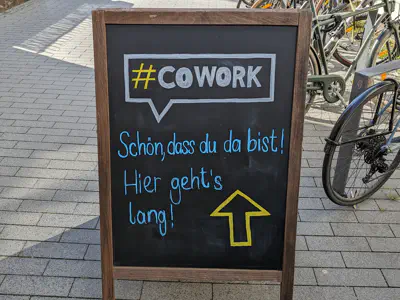 #COWORK
Schön, dass du da bist!
Hier geht's
lang!